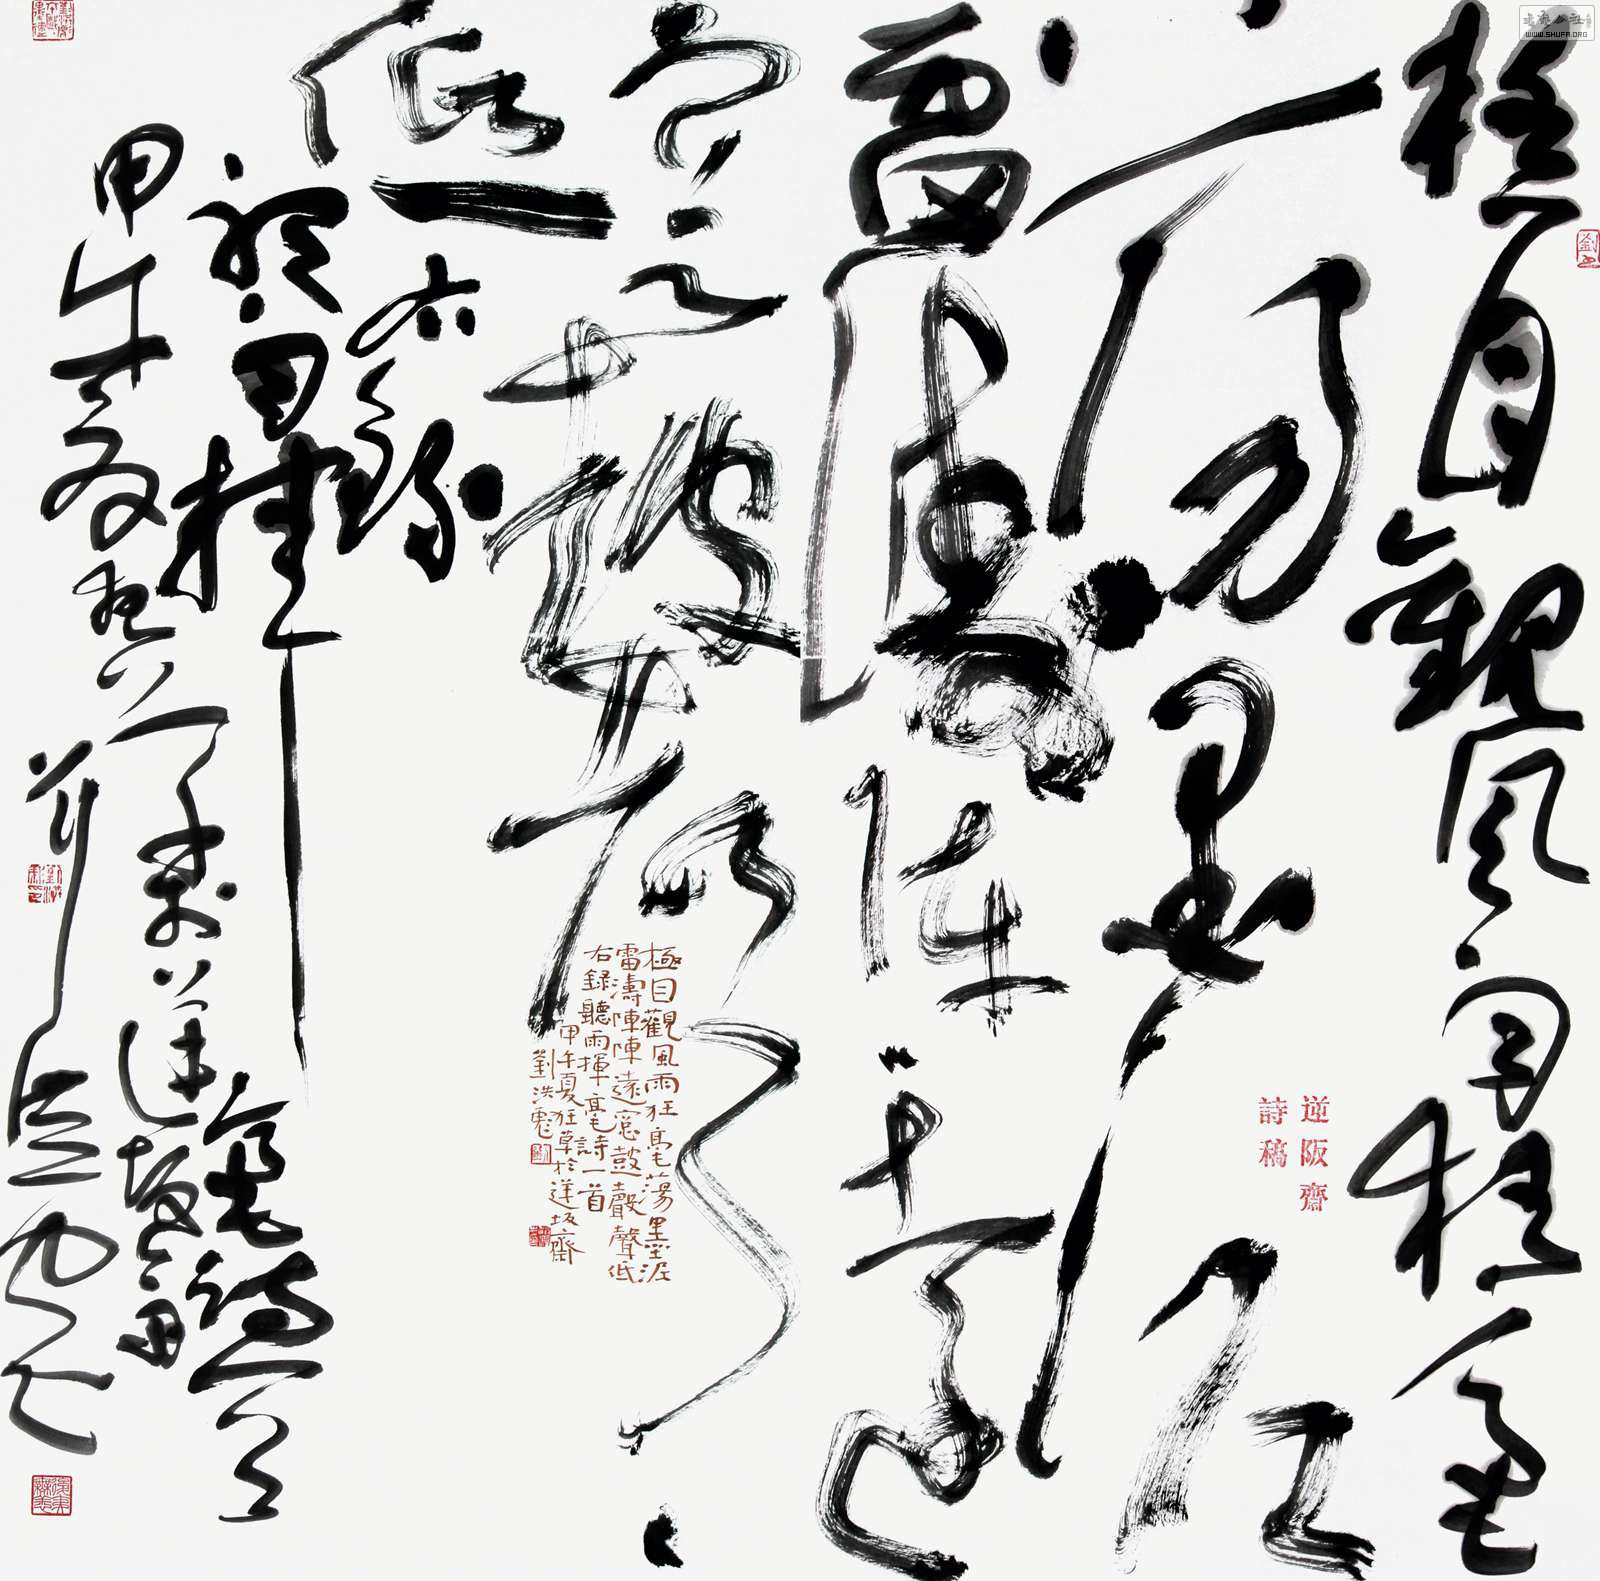 極目觀風雨狂毫
蕩墨泥
雷濤陣陣遠
窓鼓聲聲
低
右錄
聽雨揮毫詩一首
甲午夏狂草於逆坂齋
劉洪彪
極目觀風雨狂毫蕩墨泥
雷濤陣陣遠窓鼓聲聲低
右錄聽雨揮毫詩一首
甲午夏狂草於逆坂齋
劉洪彪
逆阪齋
詩稿
書法公社
WWW.SHUFA.ORG